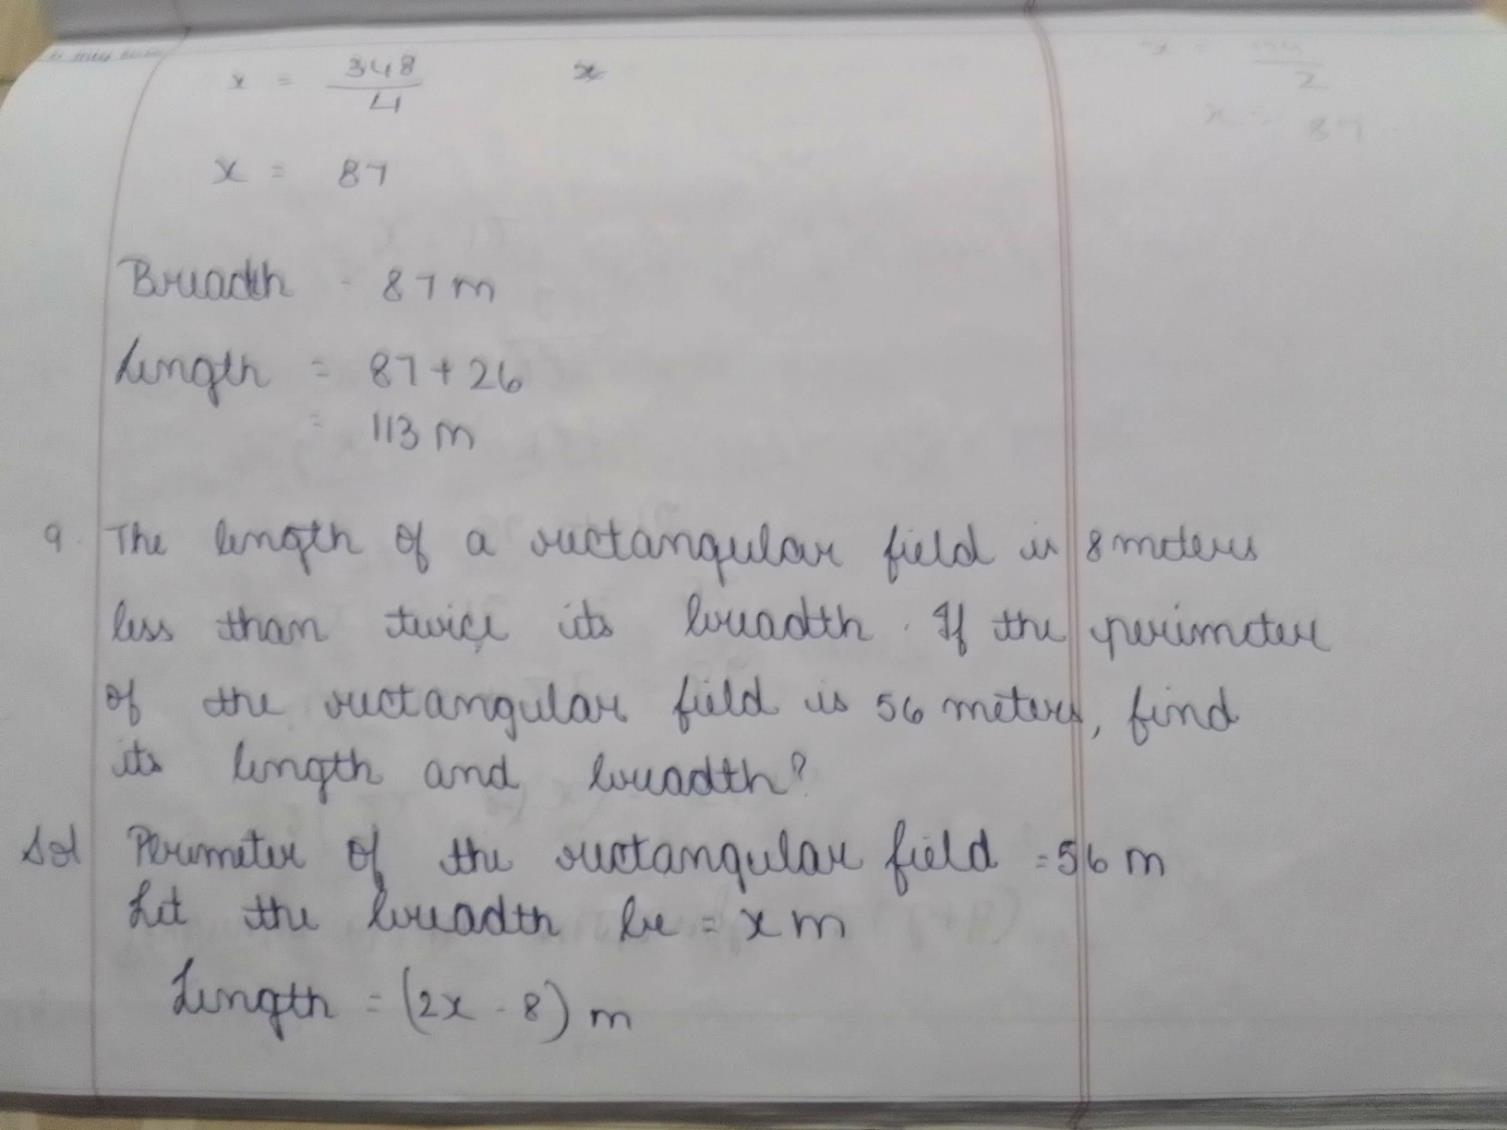 x = 348/4
x = 87
Breadth = 87 m
Length = 87 + 26
= 113 m
9. The length of a rectangular field is 8 meters
less than twice its breadth. If the perimeter
of the rectangular field is 56 meters, find
its length and breadth?
Sol Perimeter of the rectangular field = 56 m
Let the breadth be = x m
Length = (2x - 8) m